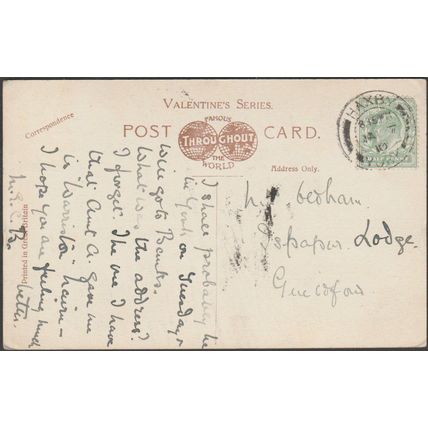 VALENTINE'S SERIES.
FAMOUS
THROUGHOUT
THE
WORLD
POST CARD.
Correspondence
Address Only.
Printed in Great Britain
HAXBY
HALF PENNY
I shall probably be
in York on Tuesday &
will go to Banks.
What was the address?
I forget. The one I have
that Aunt A. gave me
is "Warriston" hairn –
I hope you are feeling much
better.
Lodge.
Guildford